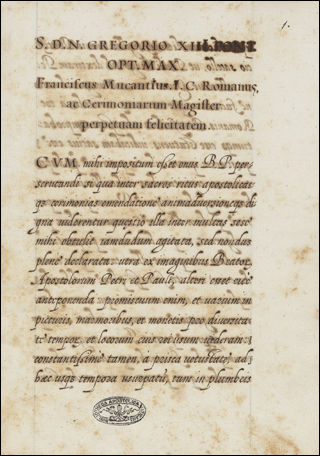 1.
S. D. N. GREGORIO XIII. PONT.
OPT. MAX.
Franciscus Mucantius I. C. Romanus,
ac Cerimoniarum Magister
perpetuam felicitatem.
CVM mihi impositum esset onus, B. P. per-
scrutandi si qua inter sacros ritus apostolicas-
q; cerimonias emendatione animaduersioneq; di
gna uiderentur quęstio illa inter multas sese
mihi obtulit iamdudum agitata, sed nondum
plene declarata: utra ex imaginibus Beator.
Apostolorum Petri, et Pauli, alteri esset
anteponenda: promiscuum enim, et uarium in
picturis, marmoribus, et monetis pro diuersita-
te tempor. et locorum eius rei usum uideram:
constantissime tamen, a prisca uetustate, ad
hæc usq; tempora usurpatū, tum in plumbeis